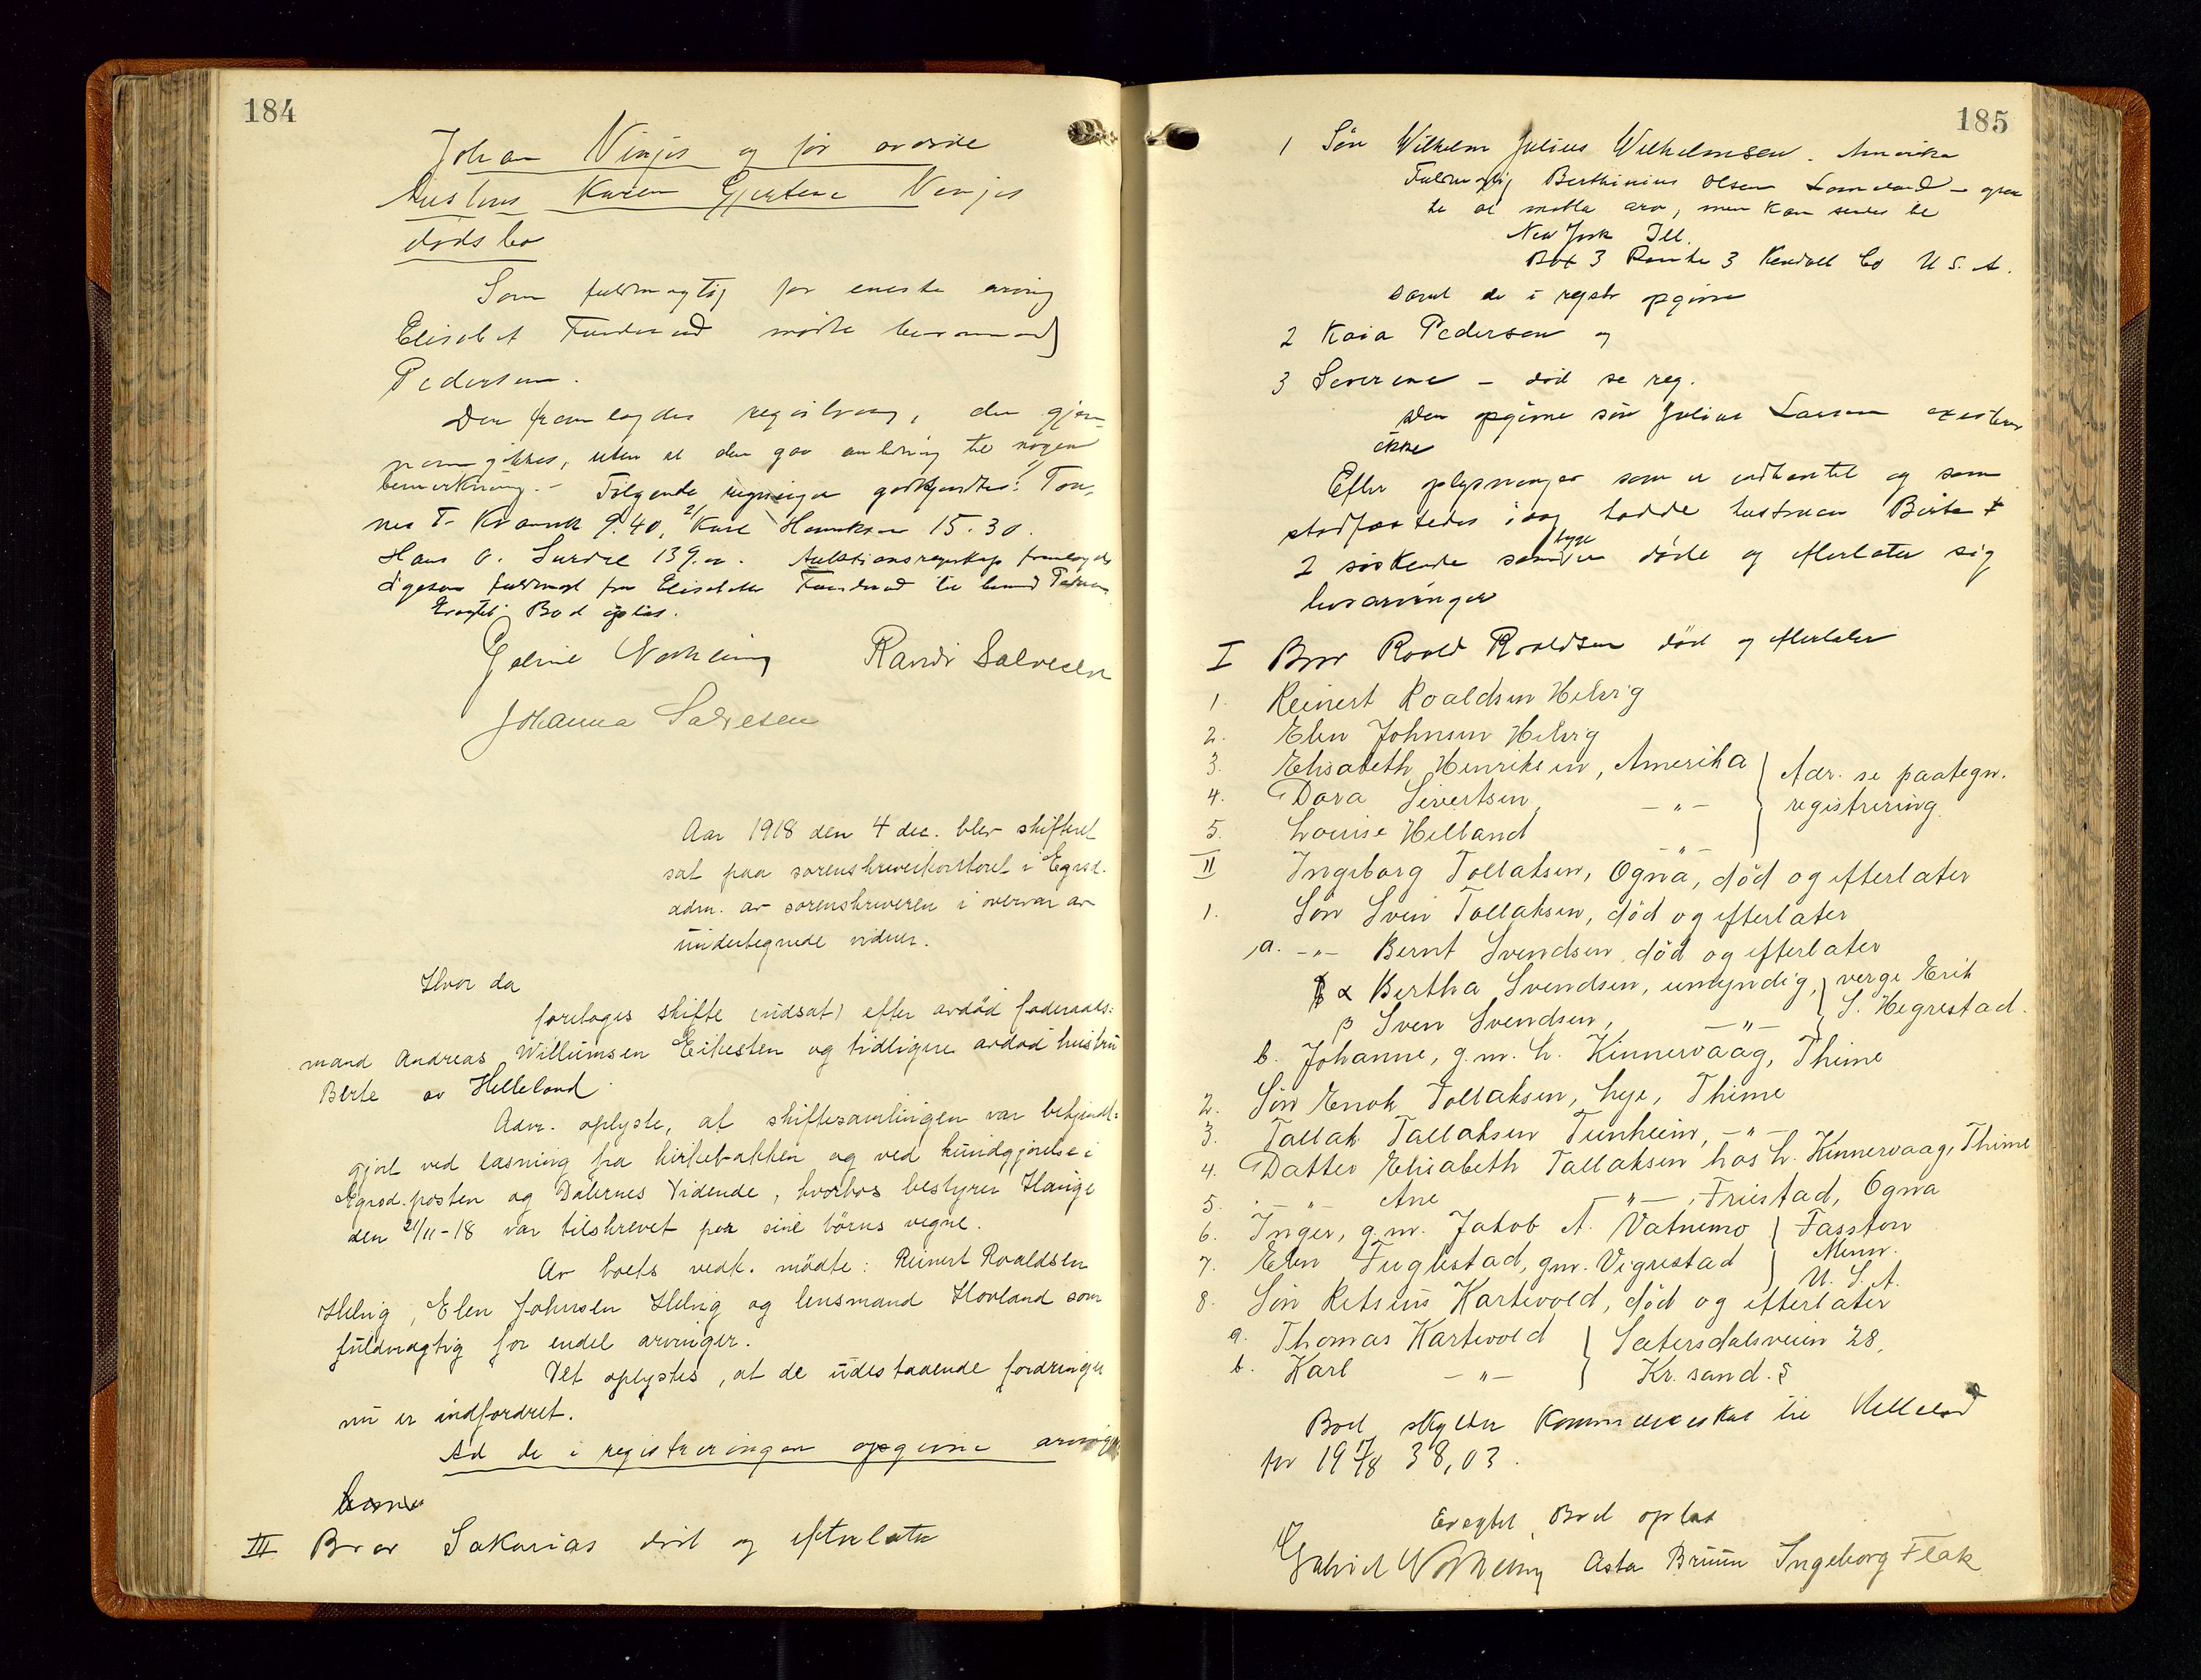 184
Johan Ninjos og før avdøde
hustrus Karen Gjertine Ninjos
dødsbo
Som fuldmægtig for eneste arving
Elisabet møtte lensmand
Pedersen.
Den fremlagdes registrering, den gjen-
nemgikkes, uten at den gav anledning til nogen
bemerkning. - Følgende regninger godkjendtes: 1/ Tøn-
nes T. 9.40, 2/ Karl Henriksen 15.30.
Hans O. 139.00. Auktionsregnskap fremlagdes
ligesom fuldmagt fra Elisabeth til lensmd Pedersen
Eragtet Boet opløst.
Gabriel Randi Salvesen
Johanna Salvesen
Aar 1918 den 4 dec. blev skifteret
sat paa sorenskriverkontoret i Egrsd.
adm. av sorenskriveren i overvær av
undertegnede vidner.
Hvor da
foretoges skifte (utdsat) efter avdød føderaads=
mand Andreas Willumsen Eikesten og tidligere avdød hustru
Berte av Helleland
Adm. oplyste, at skiftesamlingen var bekjendt=
gjort ved læsning fra kirkebakken og ved kundgjørelse i
Egrsd.posten og Dalernes Tidende, hvorhos bestyrer Hauge
den 21/11-18 var tilskrevet paa sine børns vegne.
Av boets vedk. mødte: Reinert Roaldsen
Helvig, Elen Johnsen Helvig og lensmand Hovland som
fuldmægtig for endel arvinger.
Det oplystes, at de udestaaende fordringer
nu er indfordret.
Ad de i registreringen opgivne arvinger
III Bror Sakarias død og efterlater
185
1 Søn Wilhelm Julius Wilhelmsen. Amerika
Fuldmægtig Berthinius Olsen -
te at motta arv, men kan sendes til
New York Ill.
Box 3 Route 3 Kendall Co U.S.A.
samt de i registr opgivne
2 Kaia Pedersen og
3 Severine - død se reg.
Den opgivne søn Julius Larsen existerer
ikke
Efter oplysninger som er indhentet og som
stadfæstedes idag hadde hustruen Berte +
2 søskende som begge er døde og efterlater sig
livsarvinger
I Bror Roald Roaldsen død og efterlater
1. Reinert Roaldsen Helvig
2. Elen Johnsen Helvig
3. Elisabeth Henriksen, Amerika } Adr. se paategn.
4. Dora Sivertsen, -"- registrering
5. Louise Helland -"-
II Ingeborg Tollaksen, Ogna, død og efterlater
1. Søn Sven Tollaksen, død og efterlater
a. -"- Bernt Svendsen død og efterlater
α Bertha Svendsen, umyndig, } verge Erik
β Sven Svendsen, -"- } S. Hegrestad.
b. Johanne, g.m. L. Kinnervaag, Thime
2. Søn Enok Tollaksen, Lye, Thime
3. Tallak Tallaksen Tunheim, -"-
4. Datter Elisabeth Tallaksen hos L. Kinnervaag, Thime
5. -"- Ane -"-, Friestad, Ogna
6. Inger, g.m. Jakob A. Vatnemo } Fasston
7. Elen Fuglestad, gm. Vigrestad } Minn.
U.S.A.
8. Søn Retsius Hartevold, død og efterlater
a. Thomas Hartevold } Sætersdalsveien 28,
b. Karl -"- } Kr. sand. S
Boet skylder Kommuneskat til Helleland
for 1917/18 38,03.
Eragtet Boet opløst
Gabriel Asta Bruun Ingeborg Fleak